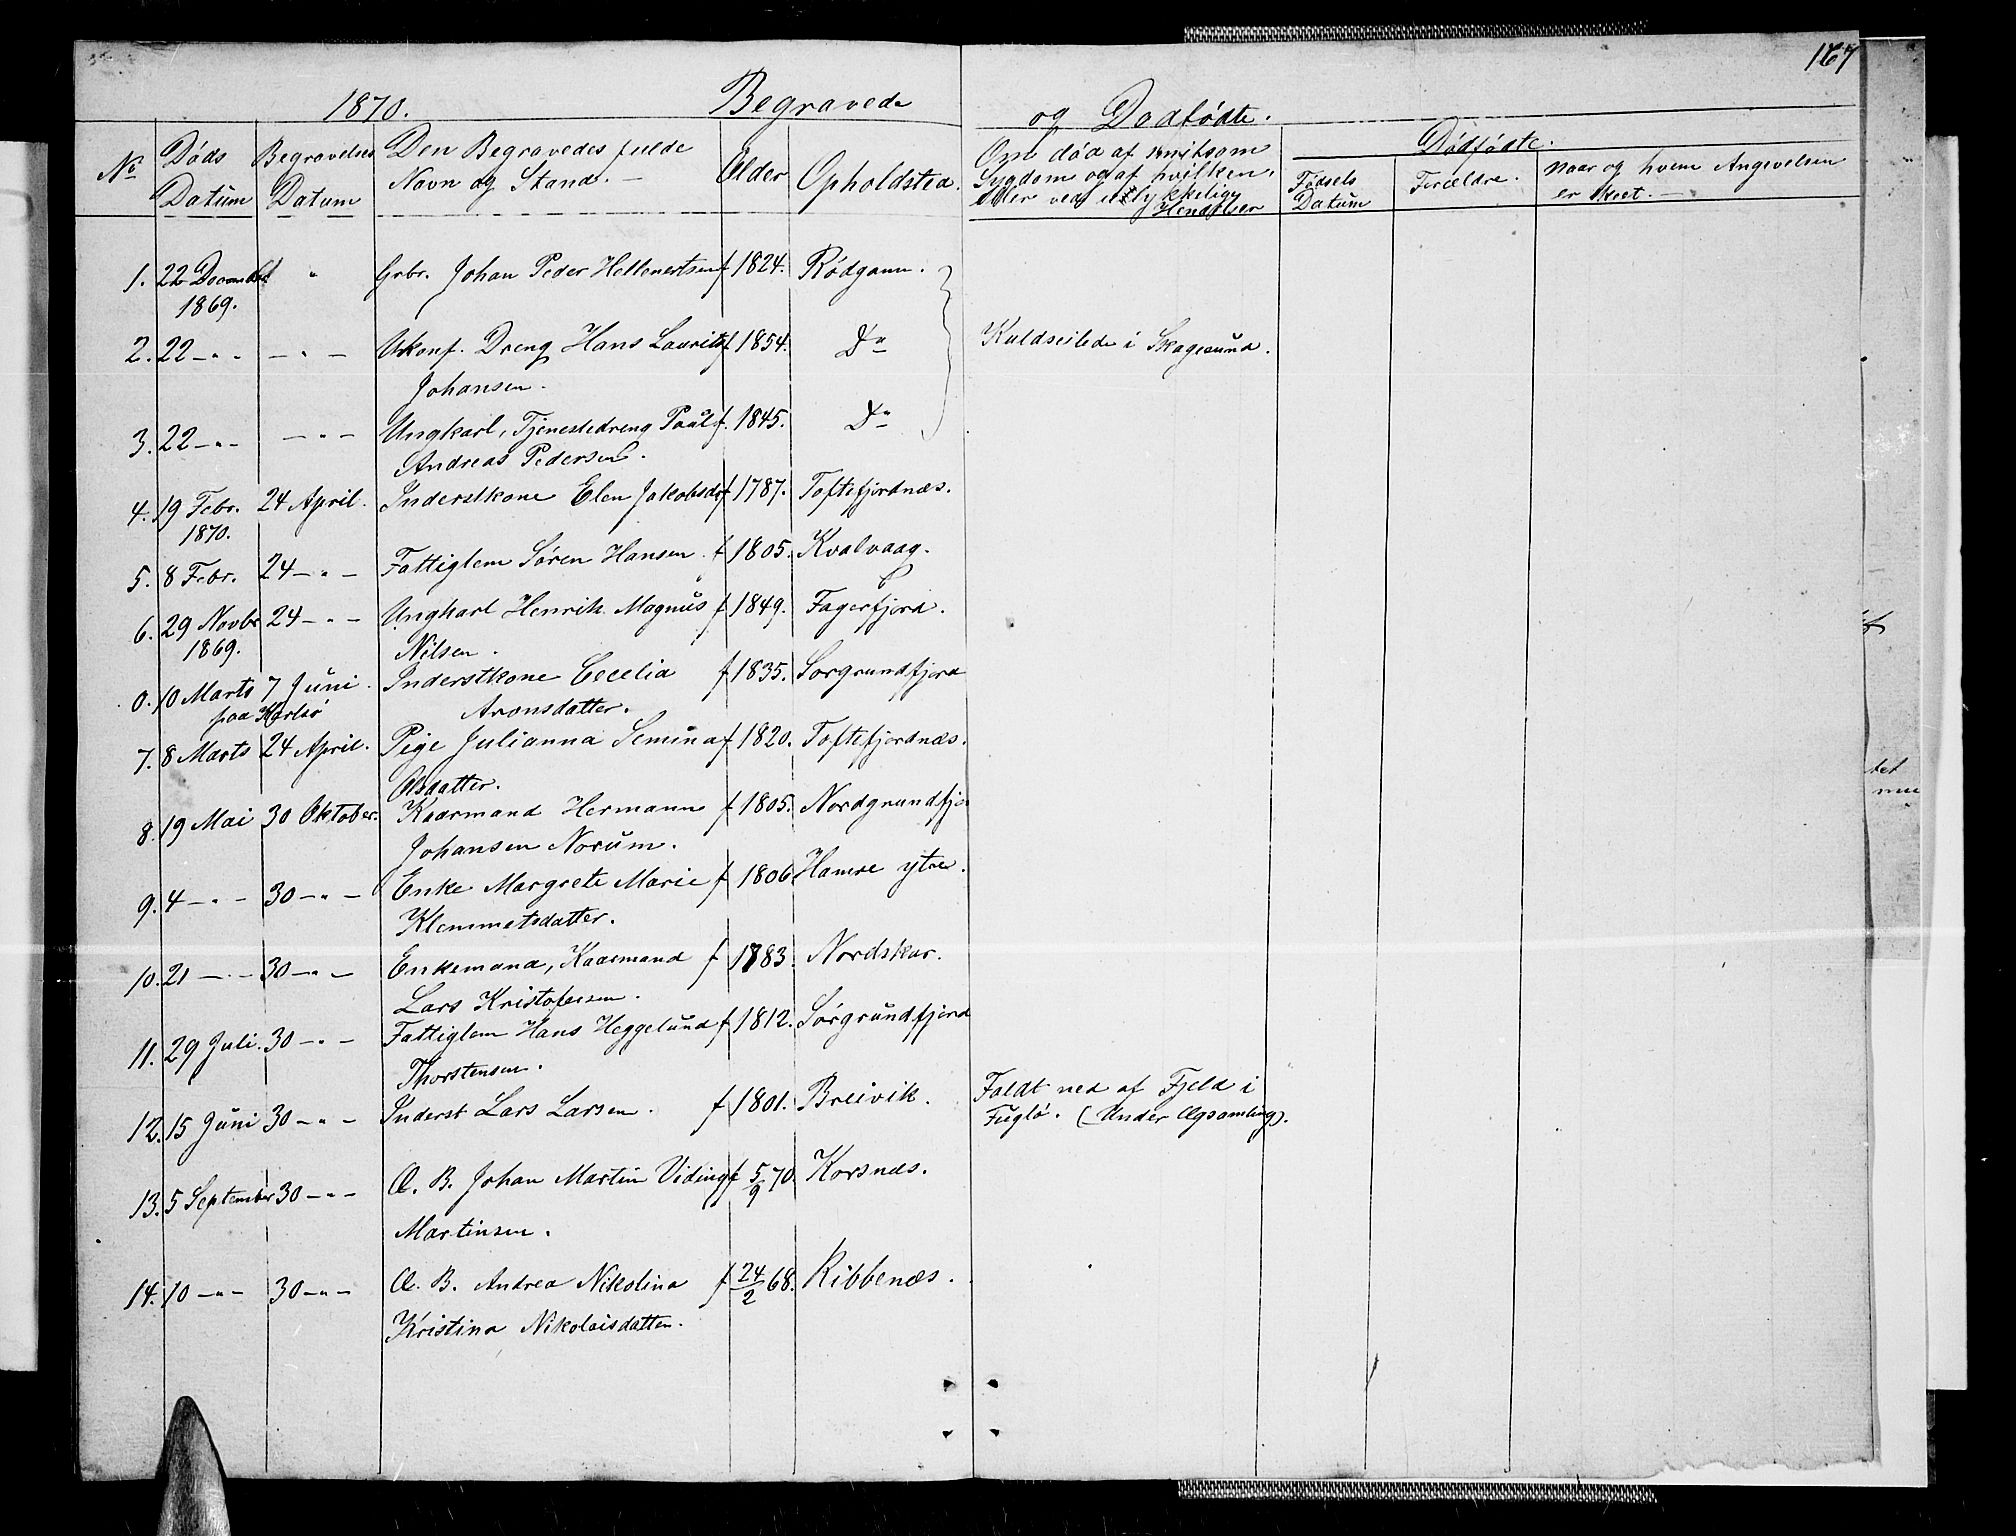 167
1870. Begravede og Dødfødte.
No Døds Datum Begravelses Datum Den Begravedes fulde Navn og Stand. Alder Opholdsted. Om død af smitsom Sygdom og af hvilken, eller ved ulykkelige Hendelser Dødfødte. Fødsels Datum Forældre. Naar og hvem Angivelsen er skeet.
1. 22 December " Grbr. Johan Peder Hellenertsen f 1824. Rødgamm.
1869.
2. 22 - " - - " - Ukonf. Dreng Hans Laurits f 1854. Do Kuldseilede i Skagesund.
Johansen.
3. 22 - " - - " - Ungkarl, Tjenestedreng Paul f. 1845. Do
Andreas Pedersen.
4. 19 Febr. 24 April. Inderstkone Elen Jakobsdr f 1787. Toftefjordnæs.
1870.
5. 8 Febr. 24 - " - Fattiglem Søren Hansen. f 1805. Kvalvaag.
6. 29 Novbr 24 - " - Ungkarl Henrik Magnus f 1849. Fagerfjord.
1869. Nilsen.
0. 10 Marts 7 Juni. Inderstkone Cecelia f 1835. Sørgrundfjord
paa Karlsø Aronsdatter.
7. 8 Marts 24 April. Pige Julianna Semina f 1820. Toftefjordnæs.
Olsdatter.
8. 19 Mai 30 Oktober. Kaarmand Hermann f 1805. Nordgrundfjo
Johansen Norum.
9. 4 - " - 30 - " - Enke Margrete Marie f 1806. Hamre ytre.
Klemmetsdatter.
10. 21 - " - 30 - " - Enkemand, Kaarmand f 1783. Nordskar.
Lars Kristofersen.
11. 29 Juli. 30 - " - Fattiglem Hans Heggelund f 1812. Sørgrundfjord
Thorstensen.
12. 15 Juni 30 - " - Inderst Lars Larsen. f 1801. Breivik. Faldt ned af Fjeld i
Fuglø. (Under Ægsamling).
13. 5 September 30 - " - Æ. B. Johan Martin Viding f 5/9 70. Korsnæs.
Martinsen.
14. 10 - " - 30 - " - Æ. B. Andrea Nikolina f 24/2 68. Ribbenæs.
Kristina Nikolaisdatter.